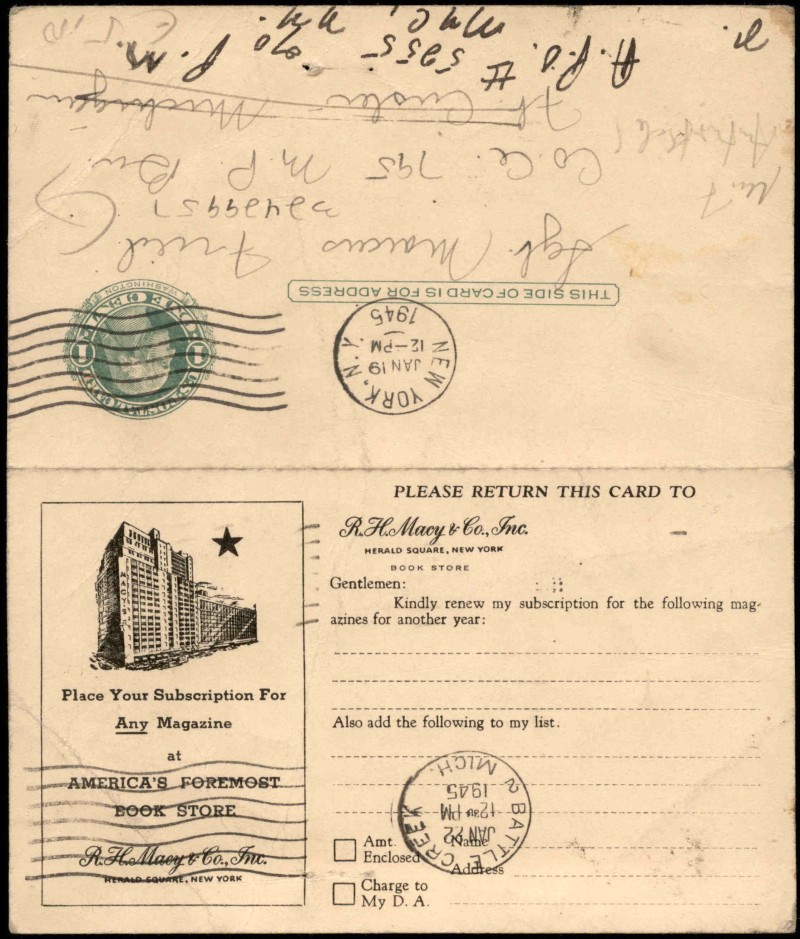 THIS SIDE OF CARD IS FOR ADDRESS
NEW YORK, N.Y.
JAN 19
12-PM
1945
1 1
WASHINGTON
Sgt. Marcus Fried
32429957
Co. C. 795 M.P. Bn.
Ft. Custer Michigan
A.P.O. # 5955
PLEASE RETURN THIS CARD TO
R.H. Macy & Co., Inc.
HERALD SQUARE, NEW YORK
BOOK STORE
Gentlemen:
Kindly renew my subscription for the following mag-
azines for another year:
Also add the following to my list.
Amt. Enclosed
Name
Address
Charge to My D. A.
BATTLE CREEK 2
MICH.
JAN 22
12 PM
1945
MACY'S
Place Your Subscription For
Any Magazine
at
AMERICA'S FOREMOST
BOOK STORE
R.H. Macy & Co., Inc.
HERALD SQUARE, NEW YORK